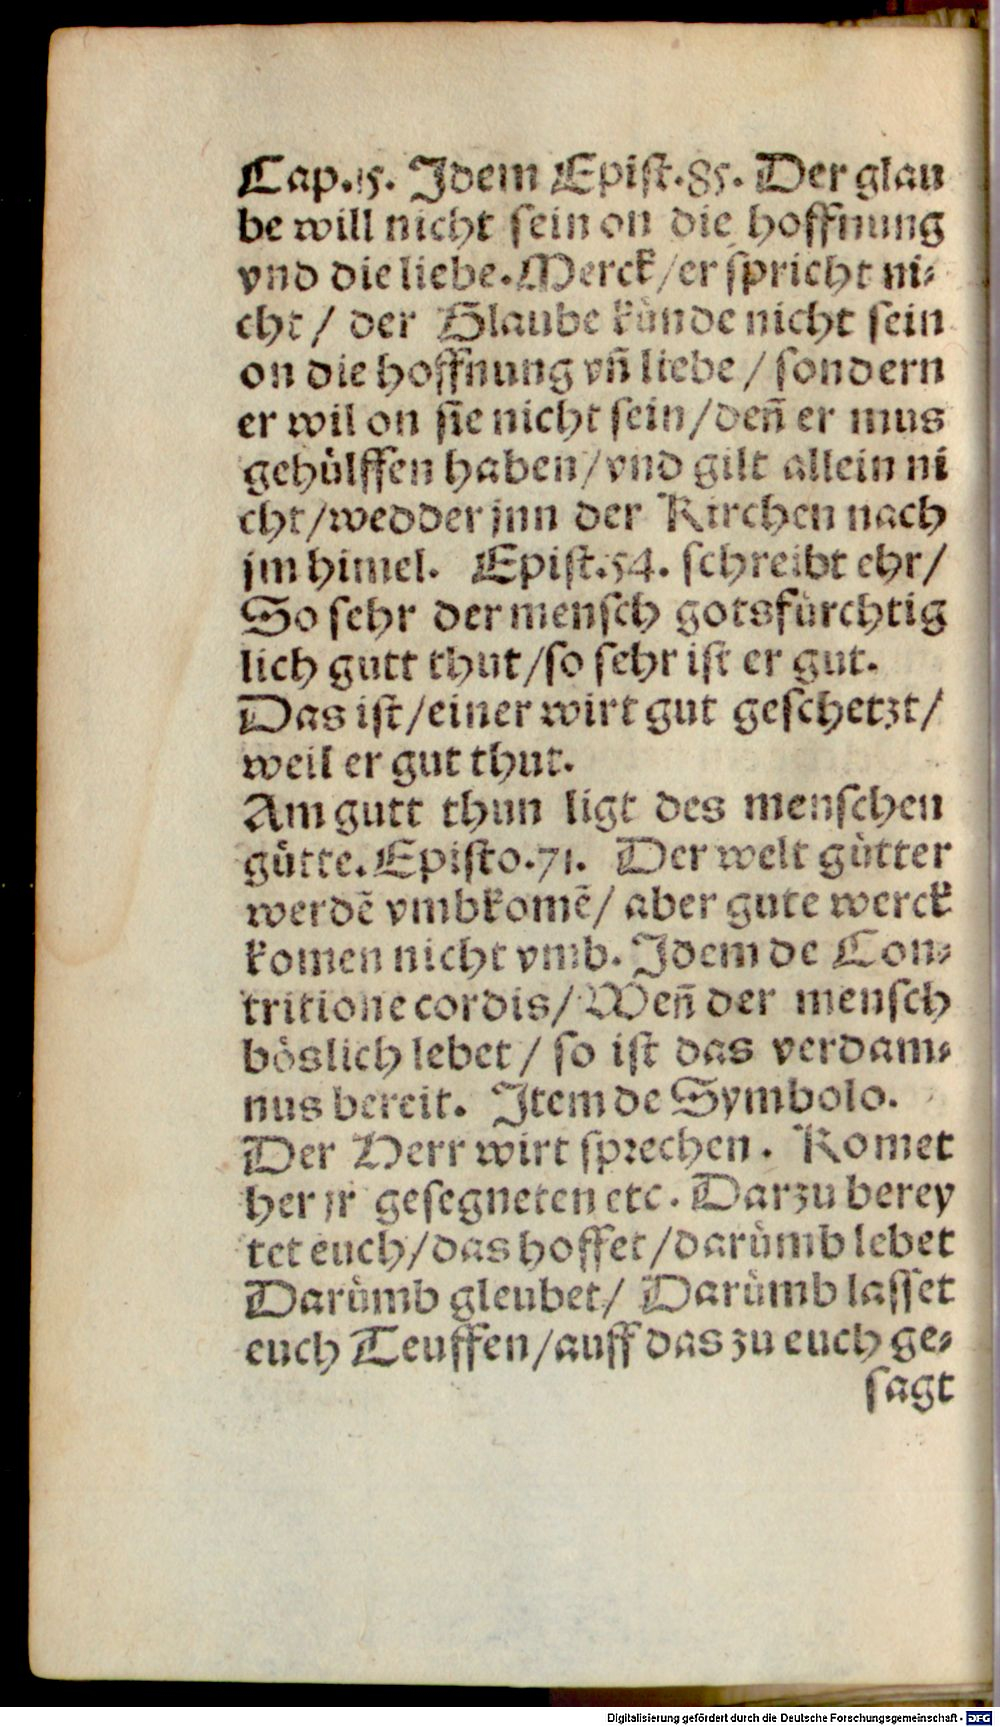 Cap.15. Idem Epist.85. Der glau
be will nicht sein on die hoffnung
vnd die liebe. Merck/er spricht ni⸗
cht/ der Glaube kůnde nicht sein
on die hoffnung vn̄ liebe/ sondern
er wil on sie nicht sein/den̄ er mus
gehůlffen haben/vnd gilt allein ni
cht/wedder jnn der Kirchen nach
jm himel. Epist.54. schreibt ehr/
So sehr der mensch gotsfůrchtig
lich gutt thut/so sehr ist er gut.
Das ist/einer wirt gut geschetzt/
weil er gut thut.
Am gutt thun ligt des menschen
gůtte. Episto.71. Der welt gůtter
werdē vmbkomē/ aber gute werck
komen nicht vmb. Idem de Con⸗
tritione cordis/ Wen̄ der mensch
bôslich lebet/ so ist das verdam⸗
nus bereit. Item de Symbolo.
Der Herr wirt sprechen. Komet
her jr gesegneten etc. Darzu berey
tet euch/das hoffet/darůmb lebet
Darůmb gleubet/ Darůmb lasset
euch Teuffen/auff das zu euch ge⸗
sagt
Digitalisierung gefördert durch die Deutsche Forschungsgemeinschaft - DFG